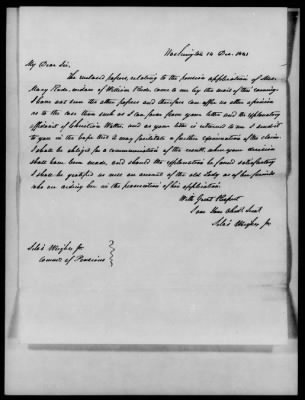 Washington 14 Dec. 1841
My Dear Sir,
The enclosed papers, relating to the pension application of Mrs.
Mary Rode, widow of William Rode, came to me by the mail of this evening.
I have not seen the other papers and therefore can offer no other opinion
as to the case than such as I can form from your letter and the explanatory
affidavit of Christian Walter, and as your letter is returned to me I send it
to you in the hope that it may facilitate a further examination of the claim.
I shall be obliged for a communication of the result, when your decision
shall have been made, and should the explanation be found satisfactory
I shall be gratified as well on account of the old Lady as of her friends
who are aiding her in the prosecution of his application.
With Great Respect
I am Your Obedt. Servt
Silas Wright Jr